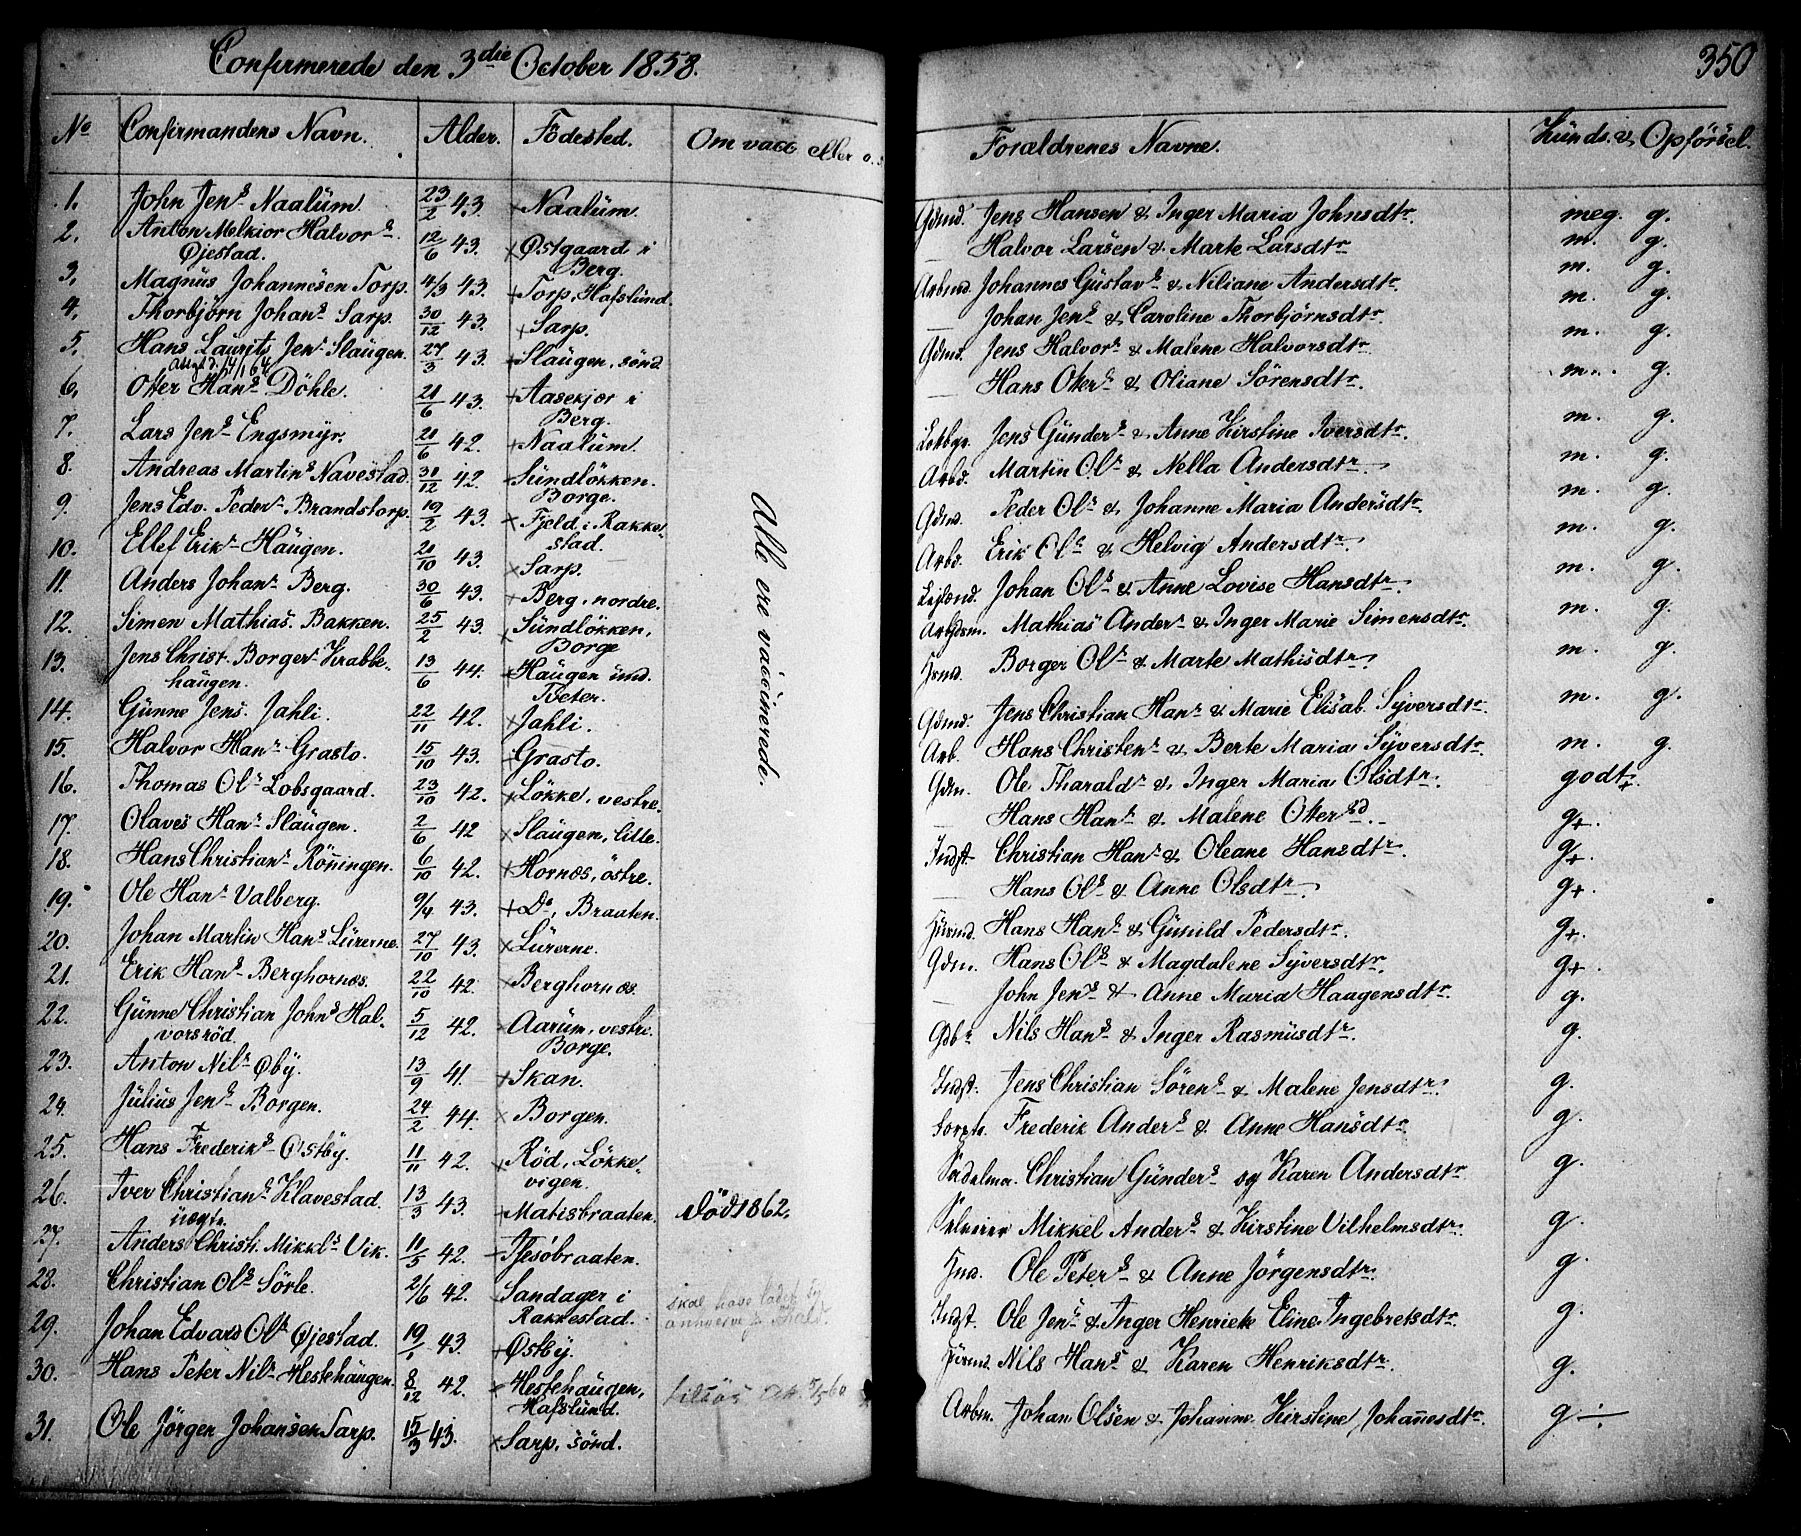 Confirmerede den 3die October 1858.
No Confirmandens Navn. Alder. Födested. Om vacc eller
1. John Jens Naalüm. 23/2 43 Naalüm.
2. Anton Melkior Halvors 12/6 43. Østgaard i
Øjestad. Berg.
3. Magnüs Johannesen Torp. 4/3 43. Torp, Hafslünd.
4. Thorbjörn Johans Sarp. 30/12 43. Sarp.
5. Hans Laurits Jens Slaügen. 27/3 43. Slaügen, sönd
6. Otter Hans Döhle. 21/6 43. Aasekjær i
Berg.
7. Lars Jens Engsmyr. 21/6 42. Naalüm.
8. Andreas Martins Navestad. 30/12 42. Sündlökken.
Borge.
9. Jens Edv. Peders Brandstorp. 19/2 43. Fjeld i Rakke-
stad.
10. Ellef Eriks Haügen. 21/10 43. Sarp.
11. Anders Johans Berg. 30/6 43. Berg, nordre.
12. Simen Mathias. Bakken. 25/2 43. Sündlökken,
Borge
13. Jens Christ. Borgers Krabbe- 13/6 44. Haügen ünd.
haügen. Tveter.
14. Günne Jens. Jahli. 22/11 42. Jahli.
15. Halvor Hans Grasto. 15/10 43. Grasto.
16. Thomas Ols Lobsgaard. 23/10 42. Lökke, vestre.
17. Olaves Hans Slaügen. 2/6 42 Slaügen, lille.
18. Hans Christians Rönningen. 6/10 42. Hornæs, östre.
19. Ole Hans Valberg. 9/4 43. Do, Braaten.
20. Johan Martin Hans Lürerne. 27/10 43. Lürerne.
21. Erik Hans Berghornæs. 22/10 42. Berghornæs.
22. Günne Christian Johns Hal- 5/12 42. Aarüm, vestre.
vorsröd. Borge.
23. Anton Nils Øby. 13/9 41. Skan.
24. Jülius Jens Borgen. 24/2 44. Borgen.
25. Hans Frederiks Østby. 11/11 42. Röd, Lökke-
vigen.
26. Iver Christians Klavestad. 13/3 43. Matisbraaten. Död 1862.
27. Anders Christi. Mikkls Vik. 11/5 42. Tjesöbraaten.
28. Christian Ols Sörle. 2/6 42. Sandager i
Rakkestad. skal have ladet sig
29. Johan Edvard Ols Øjestad. 19/1 43. Østby.
30. Hans Peter Nils Hestehaügen. 8/12 42. Hestehaügen,
Hafslünd.
31. Ole Jörgen Johansen Sarp. 15/3 43. Sarp, sönd.
Alle ere vaccinerede.
350
Forældrenes Navne. Künds. & Opförsel.
Gdmd. Jens Hansen & Inger Maria Johnsdtr. meg. g.
— Halvor Larsen & Marte Larsdtr m. g.
Arbmd. Johannes Güstavs & Niliane Andersdtr. m. g.
— Johan Jens & Caroline Thorbjörnsdtr. m. g.
Gdmd. Jens Halvors & Malene Halvorsdtr m. g.
— Hans Oters & Oliane Sörensdtr. m. g.
Jens Günders & Anne Kirstine Iversdtr. m. g.
Arbd. Martin Ols & Nella Andersdtr. m. g.
Gdmd. Peder Ols & Johanne Maria Andersdtr. m. g.
Arbd. Erik Ols & Helvig Andersdtr. m. g.
Johan Ols & Anne Lovise Hansdtr. m. g.
Arbdsm. Mathias Anders & Inger Marie Simensdtr. m. g.
Hsmd. Borger Ols & Marte Mathisdtr. m. g.
Gdmd. Jens Christian Hans & Marie Elisab. Syversdtr. m. g.
Arb. Hans Christens & Berte Maria Syversdtr. m. g.
Gdm. Ole Tharalds & Inger Maria Olsdtr. godt+.
— Hans Hans & Malene Ottersd. g+.
Indst. Christian Hans & Oleane Hansdtr. g+.
— Hans Ols & Anne Olsdtr. g+
Hüsmd. Hans Hans & Günild Pedersdtr. g+.
Gdm. Hans Ols & Magdalene Syversdtr. g+.
— John Jens & Anne Maria Haagensdtr. g.
Gdbr Nils Hans & Inger Rasmüsdtr. g.
Indst. Jens Christian Sörens & Malene Jensdtr. g.
Frederik Anders & Anne Hansdtr. g.
Sadelma. Christian Günders og Karen Andersdtr. g.
Mikkel Anders & Kirstine Vilhelmsdtr. g.
Ole Peters & Anne Jörgensdtr. g.
Indst. Ole Jens & Inger Henriette Eline Ingebretsdtr. g.
Hüsmd. Nils Hans & Karen Henriksdtr. g.
Arbm. Johan Olsen & Johanne Kirstine Johannesdtr. g ÷